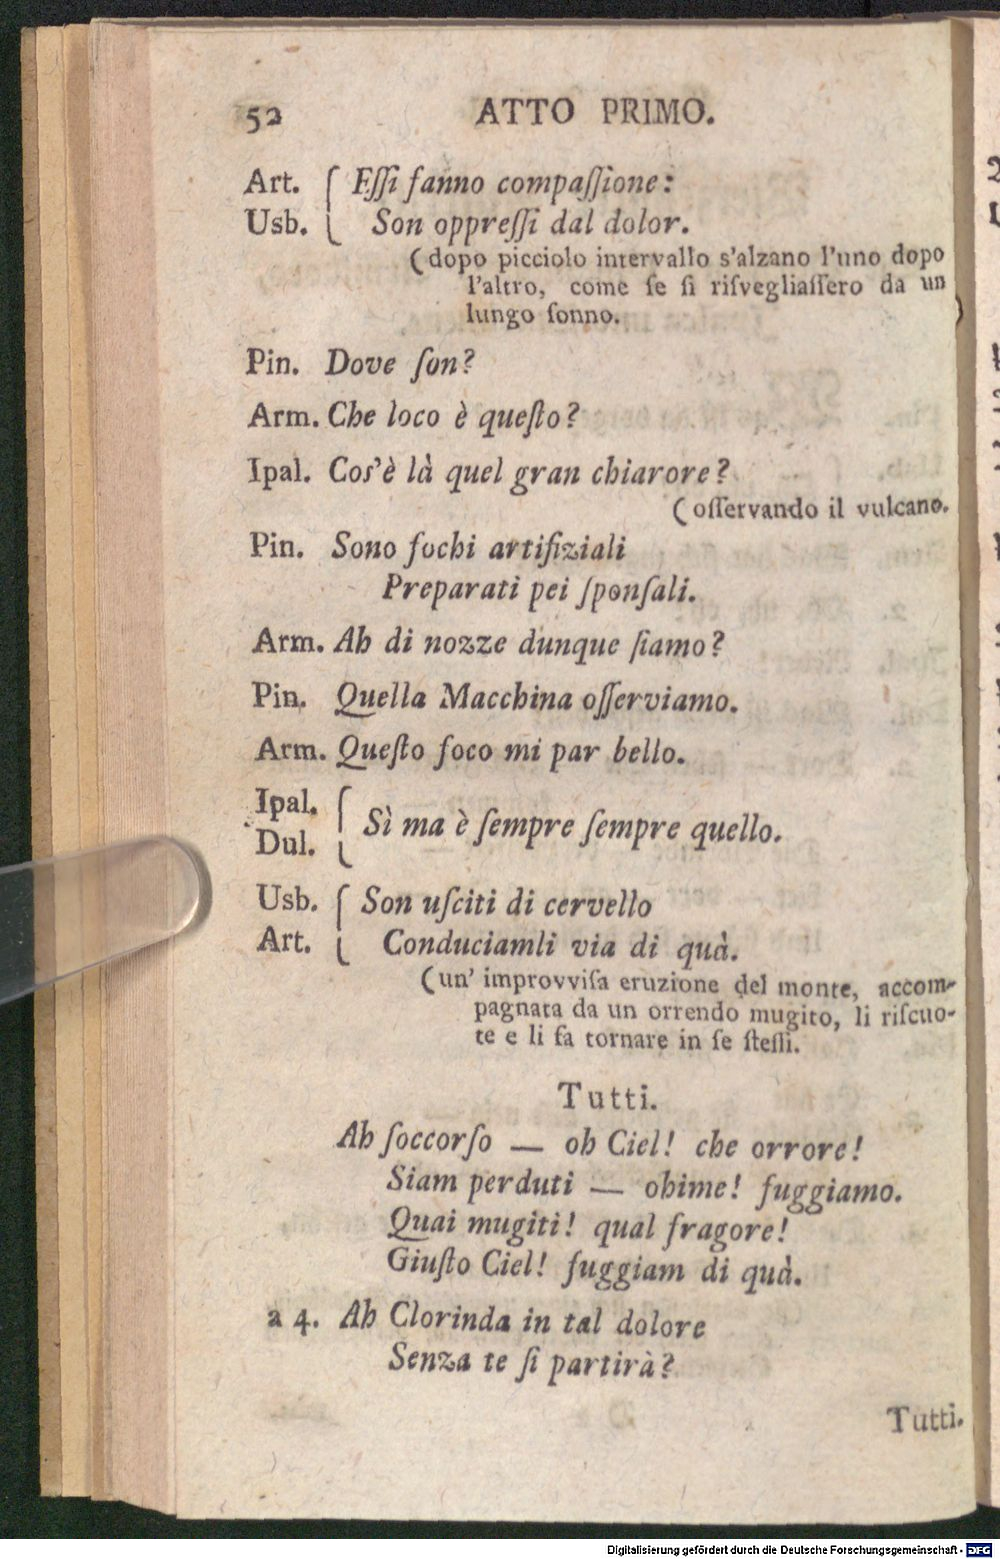 52 ATTO PRIMO.
Art. { Eſſi fanno compaſſione:
Usb. { Son oppreſſi dal dolor.
(dopo picciolo intervallo s'alzano l'uno dopo
l'altro, come ſe ſi riſvegliaſſero da un
lungo ſonno.
Pin. Dove ſon?
Arm. Che loco è queſto?
Ipal. Cos'è là quel gran chiarore?
(oſſervando il vulcano.
Pin. Sono fochi artifiziali
Preparati pei ſponſali.
Arm. Ah di nozze dunque ſiamo?
Pin. Quella Macchina oſſerviamo.
Arm. Queſto foco mi par bello.
Ipal. {
Dul. { Sì ma è ſempre ſempre quello.
Usb. { Son uſciti di cervello
Art. { Conduciamli via di quà.
(un' improvviſa eruzione del monte, accom-
pagnata da un orrendo mugito, li riſcuo-
te e li fa tornare in ſe ſteſſi.
Tutti.
Ah ſoccorſo — oh Ciel! che orrore!
Siam perduti — ohime! fuggiamo.
Quai mugiti! qual fragore!
Giuſto Ciel! fuggiam di quà.
a 4. Ah Clorinda in tal dolore
Senza te ſi partirà?
Tutti.
Digitalisierung gefördert durch die Deutsche Forschungsgemeinschaft - DFG